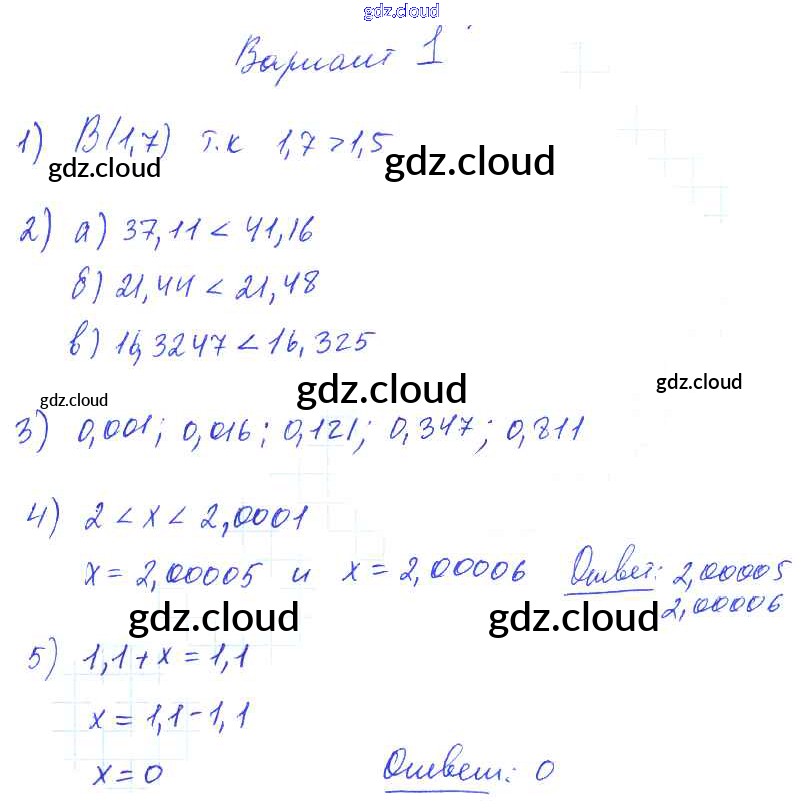 gdz.cloud
Вариант 1
1) B(1,7) т.к 1,7 > 1,5
gdz.cloud gdz.cloud
2) а) 37,11 < 41,16
б) 21,44 < 21,48
в) 16,3247 < 16,325
gdz.cloud gdz.cloud gdz.cloud
3) 0,001; 0,016; 0,121; 0,347; 0,811
4) 2 < x < 2,0001
x = 2,00005 и x = 2,00006 Ответ: 2,00005
2,00006
gdz.cloud gdz.cloud
5) 1,1 + x = 1,1
x = 1,1 - 1,1
x = 0 Ответ: 0